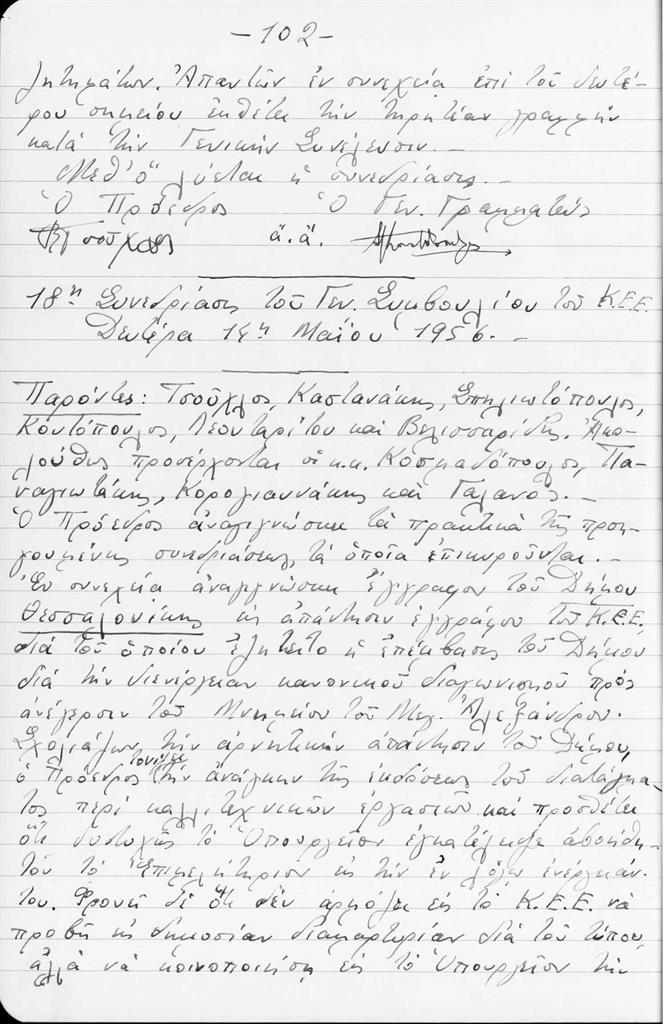 -102-
ζητημάτων. Ἀπαντῶν ἐν συνεχείᾳ ἐπὶ τοῦ δευτέ-
ρου σημείου ἐκθέτει τὴν τηρητέαν γραμμὴν
κατὰ τὴν Γενικὴν Συνέλευσιν. -
Μεθ' ὃ λύεται ἡ συνεδρίασις. -
Ὁ Πρόεδρος Ὁ Γεν. Γραμματεὺς
ἀ.ἀ.
18η Συνεδρίασις τοῦ Γεν. Συμβουλίου τοῦ Κ.Ε.Ε.
Δευτέρα 14η Μαΐου 1956. -
Παρόντες: Τσοῦχλος, Καστανάκης, Σπηλιωτόπουλος,
Κοντόπουλος, Λεονταρίτου καὶ Βελισσαρίδης. Ἀκο-
λούθως προσέρχονται οἱ κ.κ. Κοσμαδόπουλος, Πα-
ναγιωτάκης, Κορογιαννάκης καὶ Γαλανός. -
Ὁ Πρόεδρος ἀναγιγνώσκει τὰ πρακτικὰ τῆς προη-
γουμένης συνεδριάσεως, τὰ ὁποῖα ἐπικυροῦνται. -
Ἐν συνεχείᾳ ἀναγιγνώσκει ἔγγραφον τοῦ Δήμου
Θεσσαλονίκης εἰς ἀπάντησιν ἐγγράφου τοῦ Κ.Ε.Ε.
διὰ τοῦ ὁποίου ἐζητεῖτο ἡ ἐπέμβασις τοῦ Δήμου
διὰ τὴν διενέργειαν κανονικοῦ διαγωνισμοῦ πρὸς
ἀνέγερσιν τοῦ Μνημείου τοῦ Μεγ. Ἀλεξάνδρου.
Σχολιάζων τὴν ἀρνητικὴν ἀπάντησιν τοῦ Δήμου,
ὁ Πρόεδρος τονίζει τὴν ἀνάγκην τῆς ἐκδόσεως τοῦ διατάγμα-
τος περὶ καλλιτεχνικῶν ἐργασιῶν καὶ προσθέτει
ὅτι δυστυχῶς τὸ Ὑπουργεῖον ἐγκατέλειψε ἀβοήθη-
τον τὸ Ἐπιμελητήριον εἰς τὴν ἐν λόγῳ ἐνέργειάν
του. Φρονεῖ δὲ ὅτι δὲν ἁρμόζει εἰς τὸ Κ.Ε.Ε. νὰ
προβῇ εἰς δημοσίαν διαμαρτυρίαν διὰ τοῦ τύπου,
ἀλλὰ νὰ κοινοποιήσῃ εἰς τὸ Ὑπουργεῖον τὴν